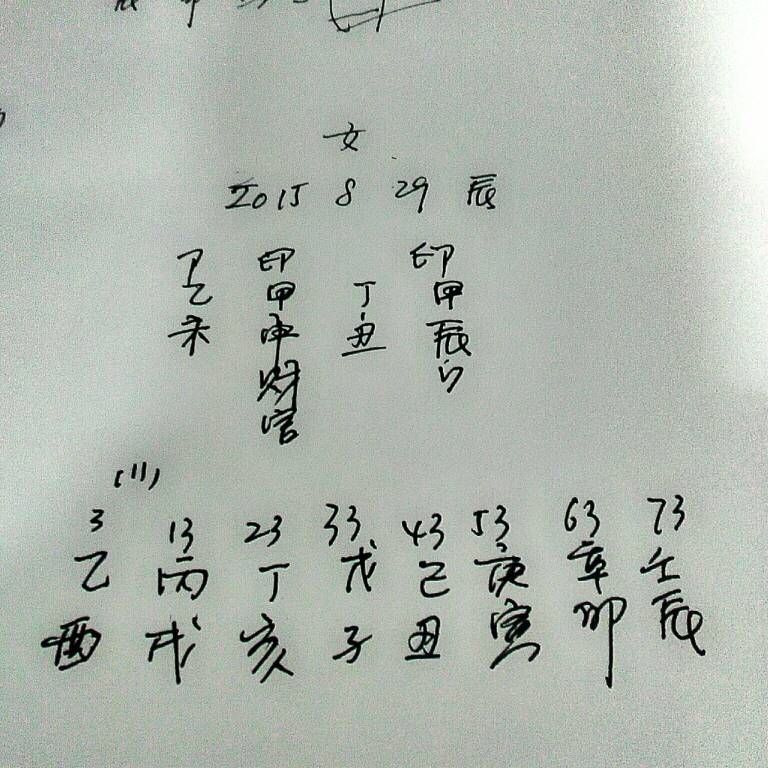 女
2015 8 29 辰
卩 印 印
乙 甲 丁 甲
未 申 丑 辰
财
官
(11)
3 13 23 33 43 53 63 73
乙 丙 丁 戊 己 庚 辛 壬
酉 戌 亥 子 丑 寅 卯 辰